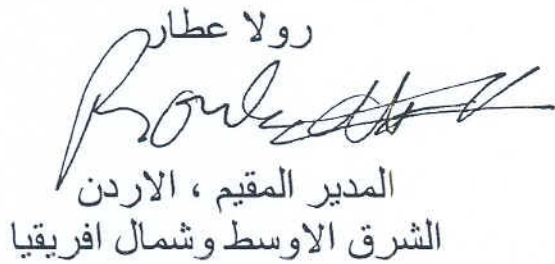 رولا عطار
المدير المقيم ، الاردن
الشرق الاوسط وشمال افريقيا